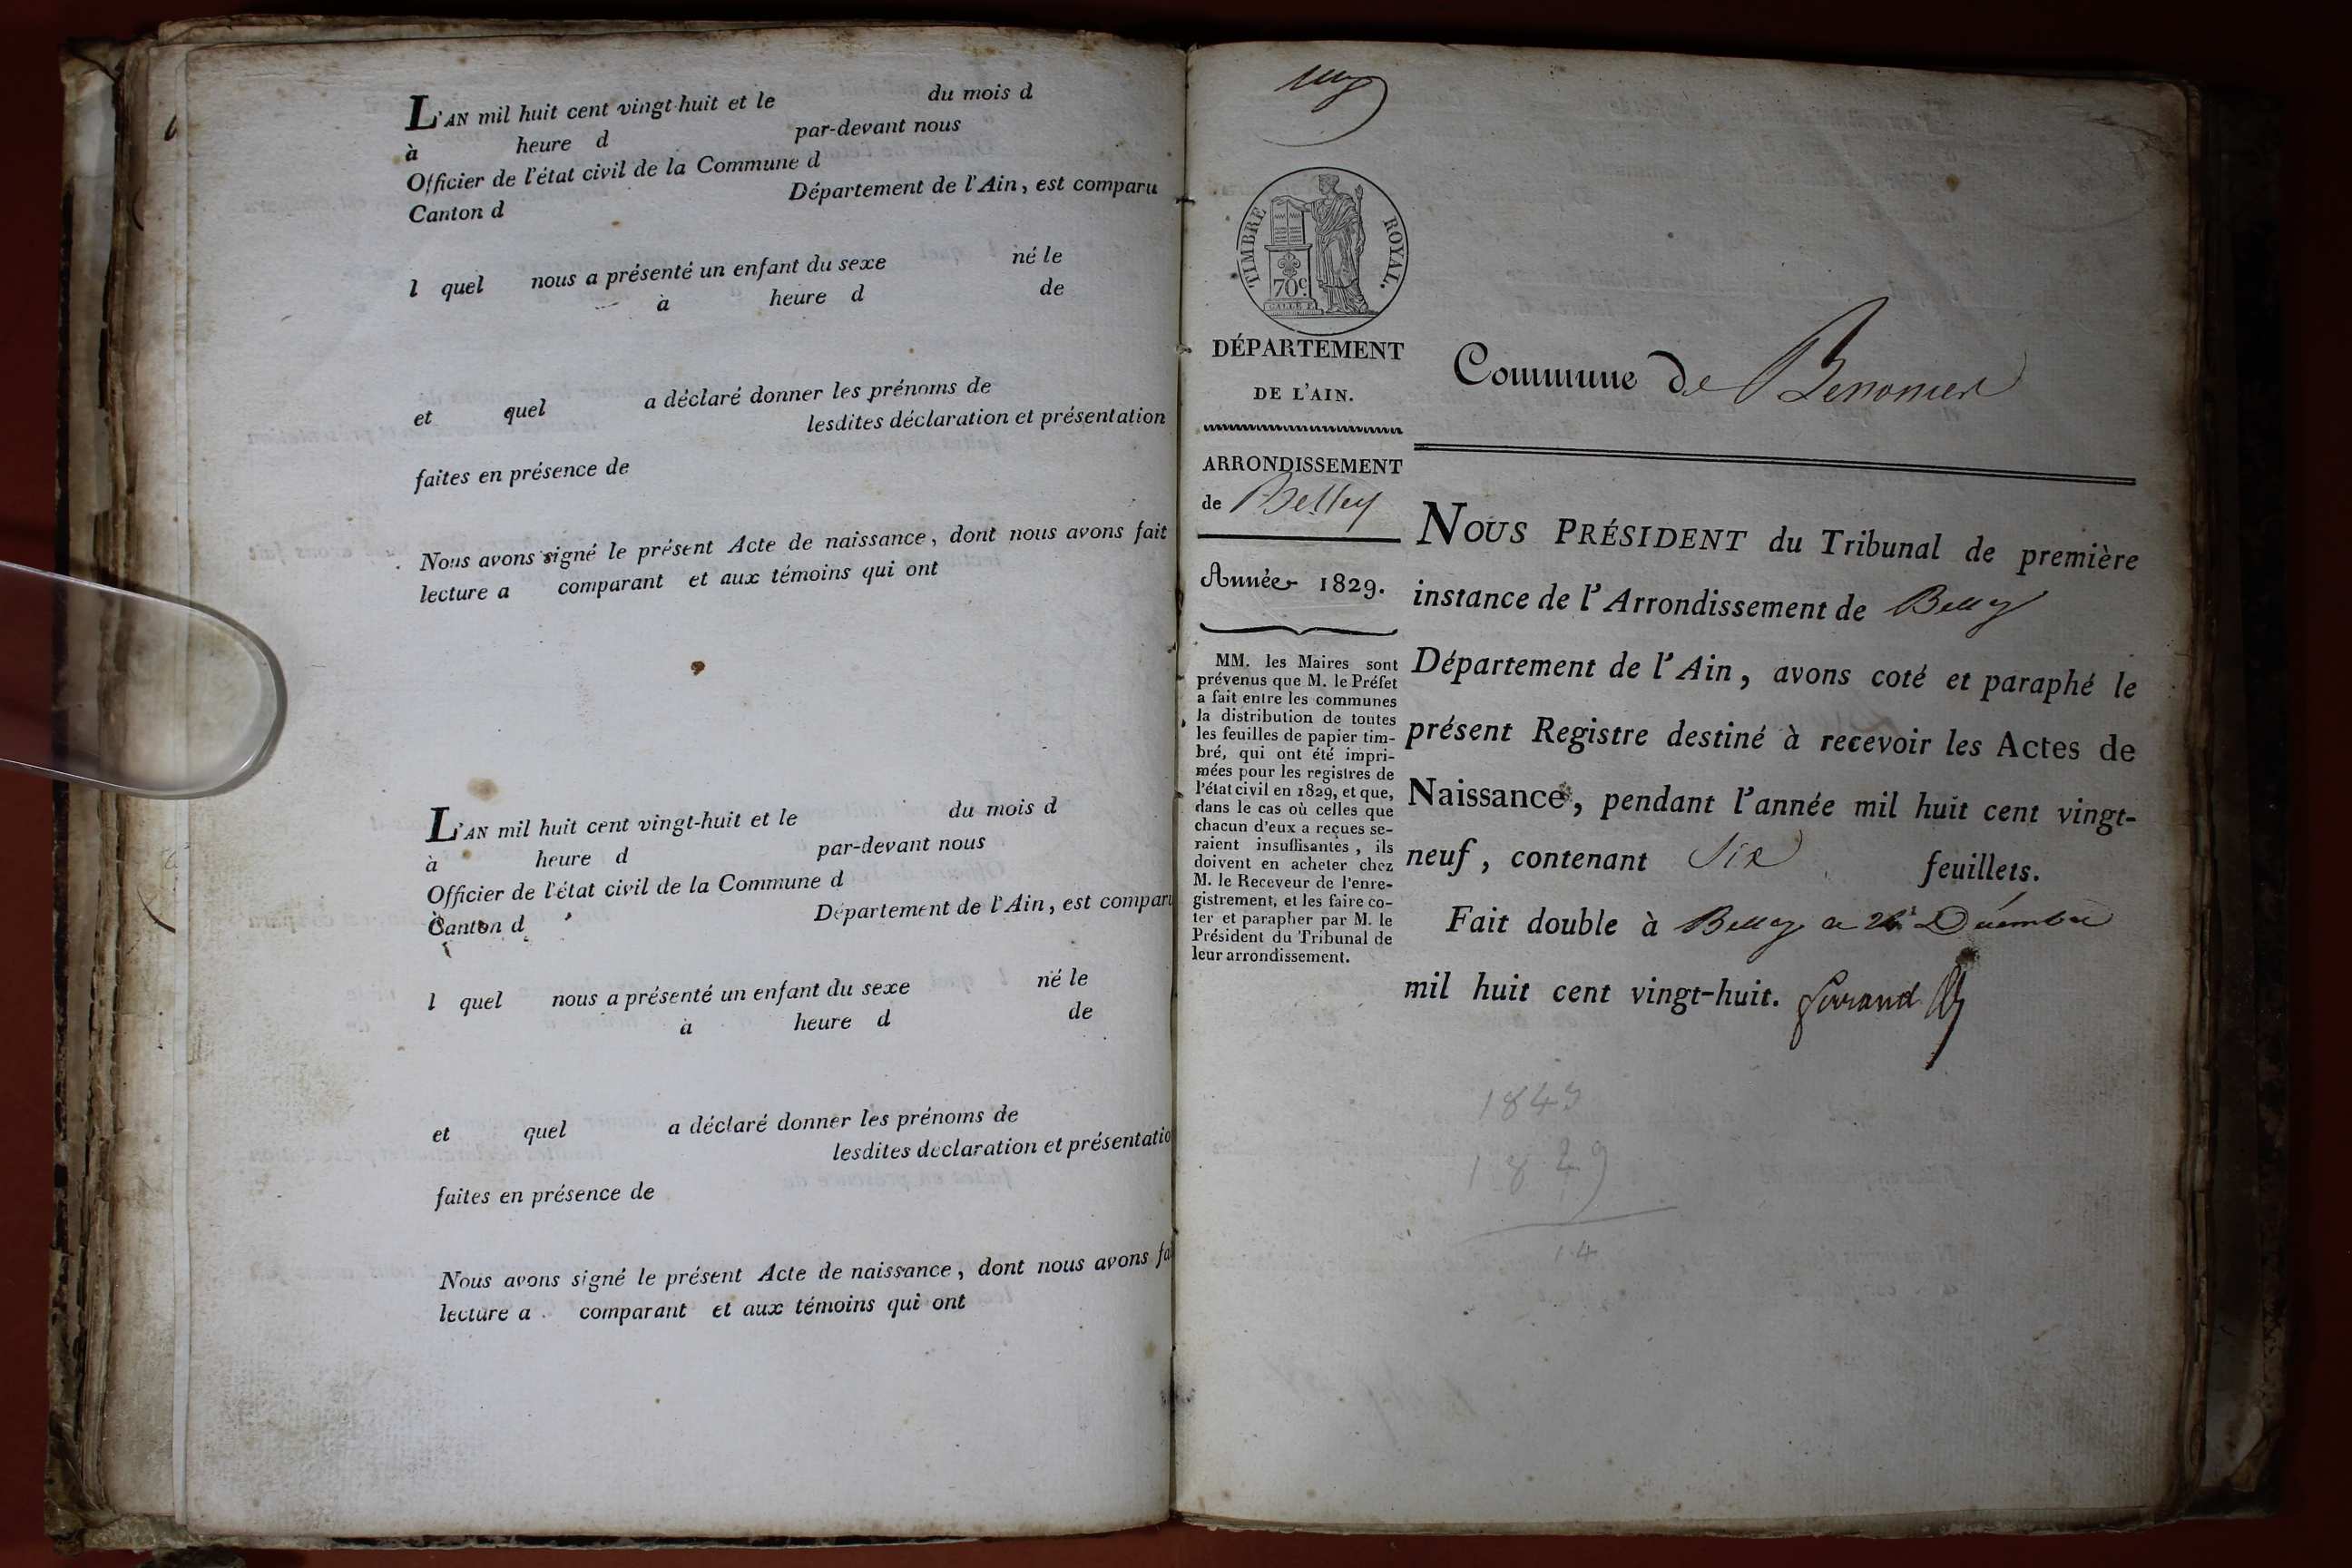 L'AN mil huit cent vingt-huit et le du mois d
à heure d par-devant nous
Officier de l'état civil de la Commune d
Canton d Département de l'Ain, est comparu
l quel nous a présenté un enfant du sexe né le
à heure d de
et quel a déclaré donner les prénoms de
lesdites déclaration et présentation
faites en présence de
Nous avons signé le présent Acte de naissance, dont nous avons fait
lecture a comparant et aux témoins qui ont
L'AN mil huit cent vingt-huit et le du mois d
à heure d par-devant nous
Officier de l'état civil de la Commune d
Canton d Département de l'Ain, est comparu
l quel nous a présenté un enfant du sexe né le
à heure d de
et quel a déclaré donner les prénoms de
lesdites déclaration et présentatio
faites en présence de
Nous avons signé le présent Acte de naissance, dont nous avons fa
lecture a comparant et aux témoins qui ont
TIMBRE ROYAL.
70c.
DÉPARTEMENT
DE L'AIN.
ARRONDISSEMENT
de Belley
Année 1829.
MM. les Maires sont
prévenus que M. le Préfet
a fait entre les communes
la distribution de toutes
les feuilles de papier tim-
bré, qui ont été impri-
mées pour les registres de
l'état civil en 1829, et que,
dans le cas où celles que
chacun d'eux a reçues se-
raient insuffisantes, ils
doivent en acheter chez
M. le Receveur de l'enre-
gistrement, et les faire co-
ter et parapher par M. le
Président du Tribunal de
leur arrondissement.
Commune de Benonces
NOUS PRÉSIDENT du Tribunal de première
instance de l'Arrondissement de Belley
Département de l'Ain, avons coté et paraphé le
présent Registre destiné à recevoir les Actes de
Naissance, pendant l'année mil huit cent vingt-
neuf, contenant Six feuillets.
Fait double à Belley ce Décembre
mil huit cent vingt-huit.
1843
1829
14